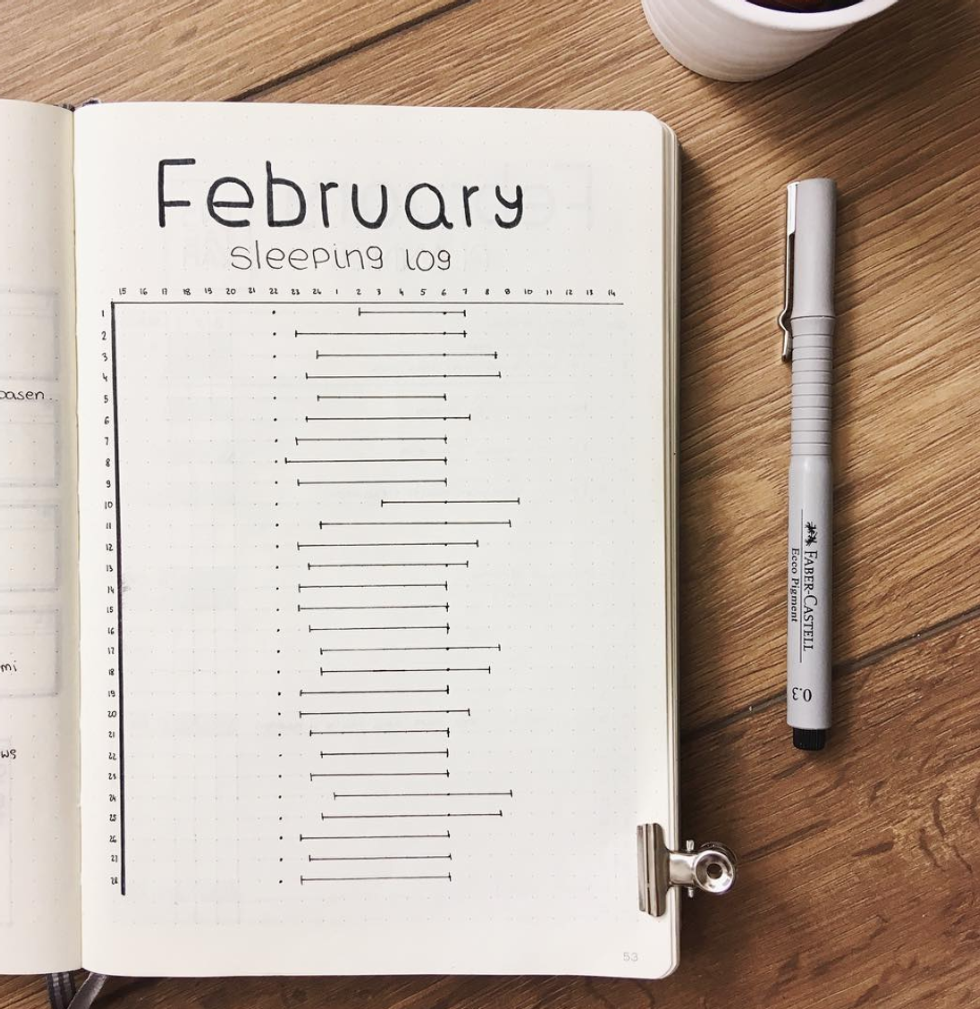 February
sleeping log
15 16 17 18 19 20 21 22 23 24 1 2 3 4 5 6 7 8 9 10 11 12 13 14
1
2
3
4
5
6
7
8
9
10
11
12
13
14
15
16
17
18
19
20
21
22
23
24
25
26
27
28
53
basen.
mi
ws
FABER-CASTELL
Ecco Pigment
0.3